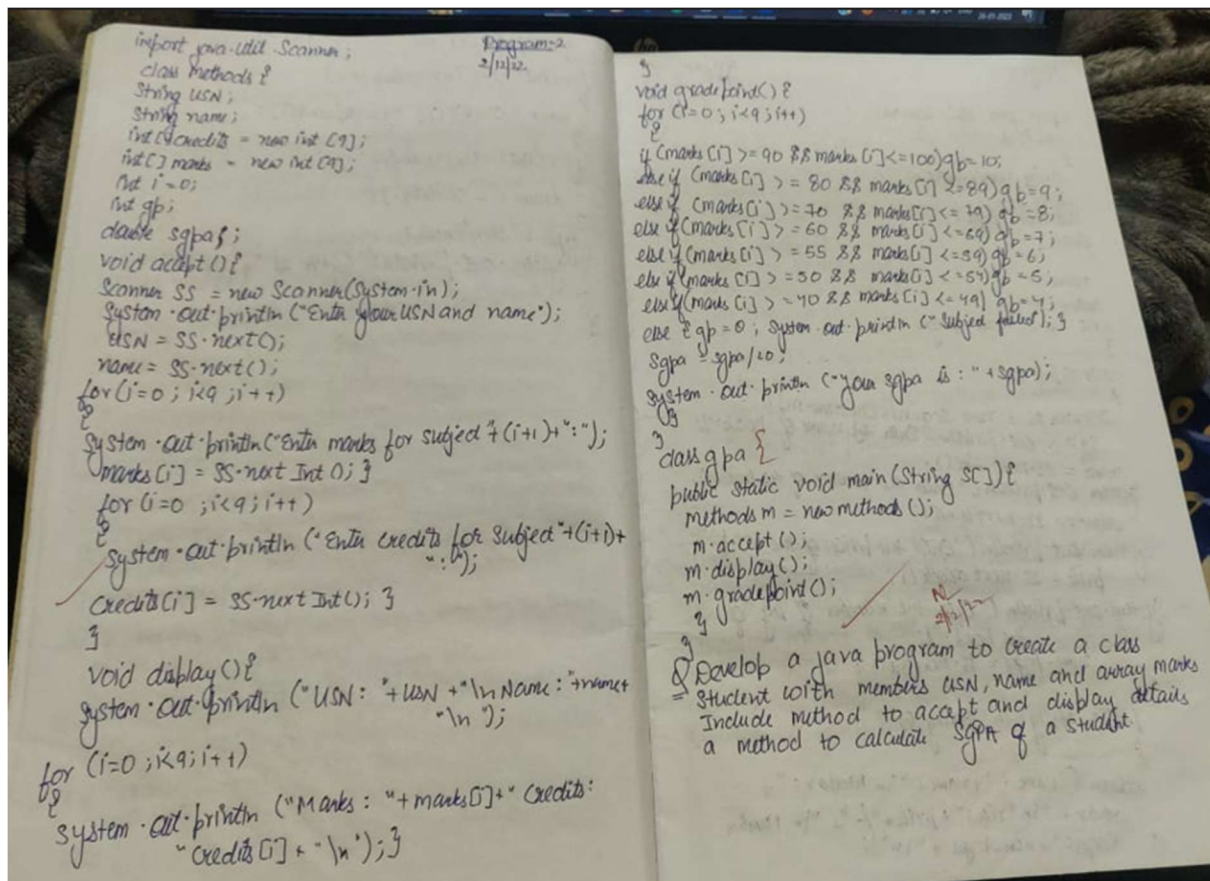 import java.util.Scanner;
Program-2
2/12/22
class methods {
String USN;
String name;
int[] credits = new int [9];
int[] marks = new int [9];
int i=0;
int gp;
double sgpa;
void accept() {
Scanner SS = new Scanner(System.in);
System.out.println ("Enter your USN and name");
USN = SS.next();
name = SS.next();
for(i=0 ; i<9 ; i++)
{
System.out.println("Enter marks for subject"+(i+1)+":");
marks[i] = SS.next Int(); }
for (i=0 ; i<9; i++)
{
System.out.println ("Enter credits for subject"+(i+1)+
":");
credits[i] = SS.next Int(); }
}
void display() {
System.out.println ("USN: "+USN+"\n Name: "+name+
"\n");
for (i=0 ; i<9; i++)
{
System.out.println ("Marks: "+marks[i]+" Credits:
"credits[i]+ "\n"); }
}
void gradepoint() {
for (i=0 ; i<9 ; i++)
{
if (marks[i] >= 90 && marks[i]<=100) gp=10;
else if (marks[i] >= 80 && marks[i] <=89) gp=9;
else if (marks[i] >=70 && marks[i]<=79) gp=8;
else if (marks[i] >=60 && marks[i] <=69) gp=7;
else if (marks[i] >= 55 && marks[i] <=59) gp=6;
else if (marks[i] >=50 && marks[i] <=54) gp=5;
else if (marks[i] >=40 && marks[i] <=49) gp=4;
else { gp=0; System.out.println ("Subject failed"); }
sgpa = sgpa/20;
System.out.println ("your sgpa is : " +sgpa);
}
}
class gpa {
public static void main (String s[]) {
methods m = new methods ();
m.accept();
m.display();
m.gradepoint();
}
2/12/22
}
Q Develop a java program to create a class
Student with members USN, name and array marks
Include method to accept and display details
a method to calculate SGPA of a student